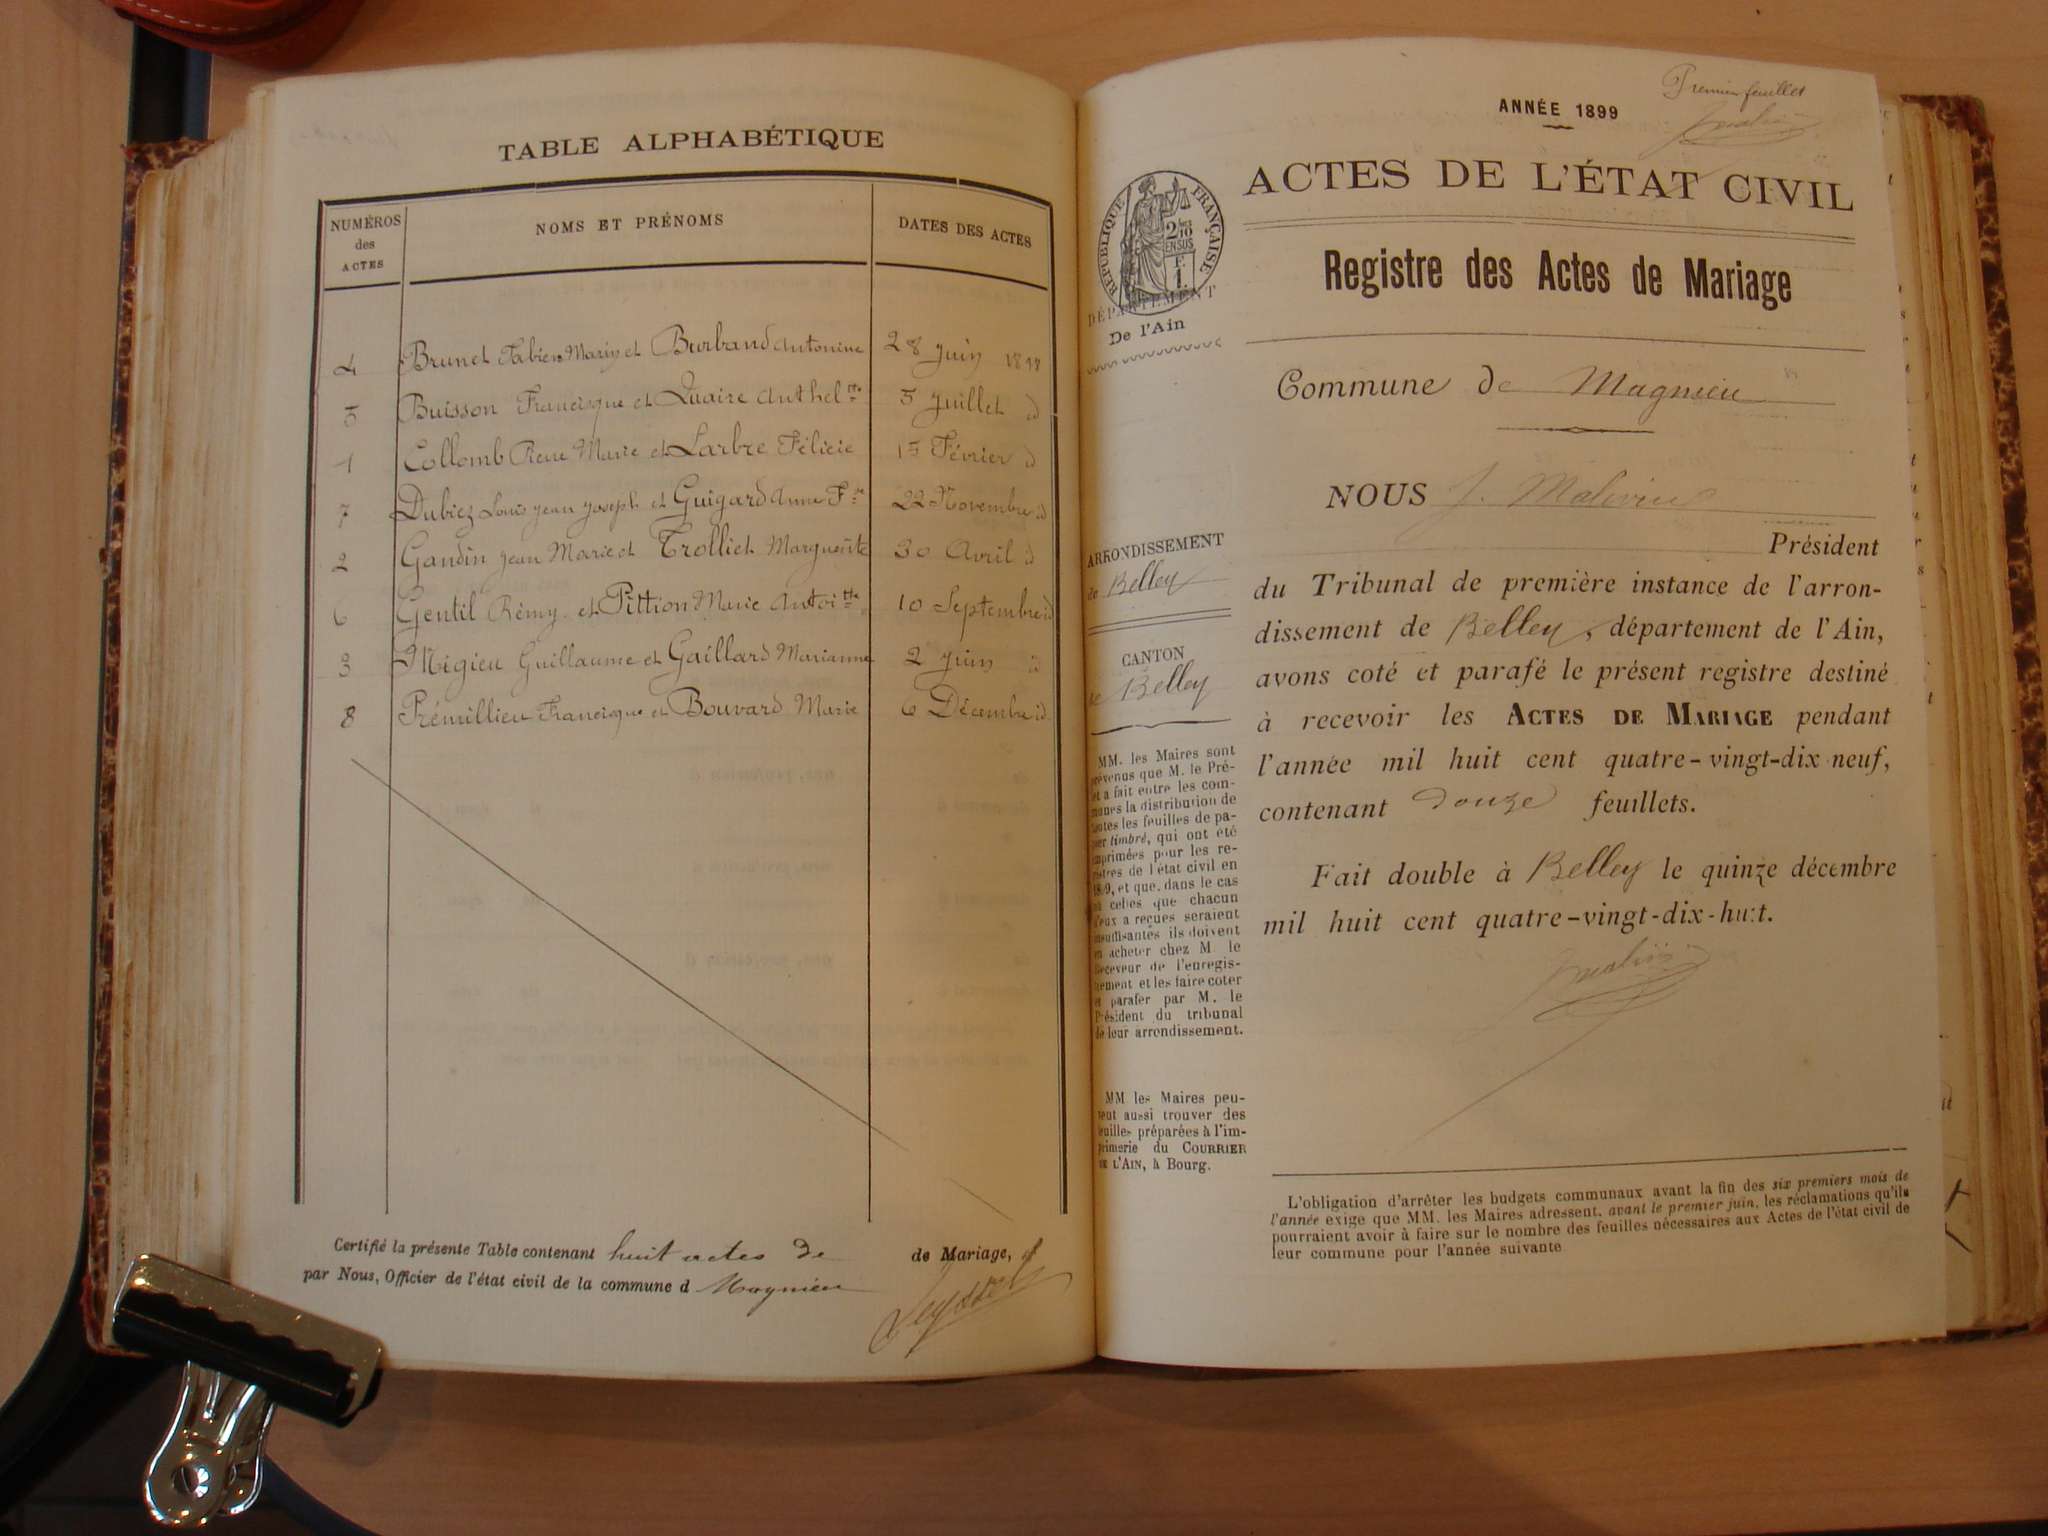 TABLE ALPHABÉTIQUE
NUMÉROS des ACTES
NOMS ET PRÉNOMS
DATES DES ACTES
4 Brunet Fabien Marin et Burband Antonine 28 juin 1898
5 Buisson Francisque et Quaire Anthel^me 5 Juillet id
1 Collomb Pierre Marie et Larbre Félicie 15 Février id
7 Dubiez Louis Jean Joseph et Guigard Anne F^se 22 Novembre id
2 Gandin Jean Marie et Trolliet Marguerite 30 Avril id
6 Gentil Rémy et Pittion Marie Antoi^tte 10 Septembre id
3 Migieu Guillaume et Gaillard Marianne 2 juin id
8 Prémillieu Francisque et Bouvard Marie 6 Décembre id
Certifié la présente Table contenant huit actes de de Mariage,
par Nous, Officier de l'état civil de la commune d Magnieu
Premier feuillet
ANNÉE 1899
ACTES DE L'ÉTAT CIVIL
RÉPUBLIQUE FRANÇAISE
DÉPARTEMENT
De l'Ain
Registre des Actes de Mariage
Commune de Magnieu
NOUS J.
Président
du Tribunal de première instance de l'arron-
dissement de Belley, département de l'Ain,
avons coté et parafé le présent registre destiné
à recevoir les ACTES DE MARIAGE pendant
l'année mil huit cent quatre-vingt-dix neuf,
contenant douze feuillets.
Fait double à Belley le quinze décembre
mil huit cent quatre-vingt-dix-huit.
ARRONDISSEMENT
de Belley
CANTON
de Belley
MM. les Maires sont
prévenus que M. le Pré-
et a fait entre les com-
munes la distribution de
toutes les feuilles de pa-
pier timbré, qui ont été
imprimées pour les re-
gistres de l'état civil en
1899, et que, dans le cas
où celles que chacun
d'eux a reçues seraient
insuffisantes ils doivent
en acheter chez M. le
Receveur de l'enregis-
trement et les faire coter
et parafer par M. le
Président du tribunal
de leur arrondissement.
MM les Maires peu-
vent aussi trouver des
feuilles préparées à l'im-
primerie du COURRIER
DE L'AIN, à Bourg.
L'obligation d'arrêter les budgets communaux avant la fin des six premiers mois de
l'année exige que MM. les Maires adressent, avant le premier juin, les réclamations qu'ils
pourraient avoir à faire sur le nombre des feuilles nécessaires aux Actes de l'état civil de
leur commune pour l'année suivante